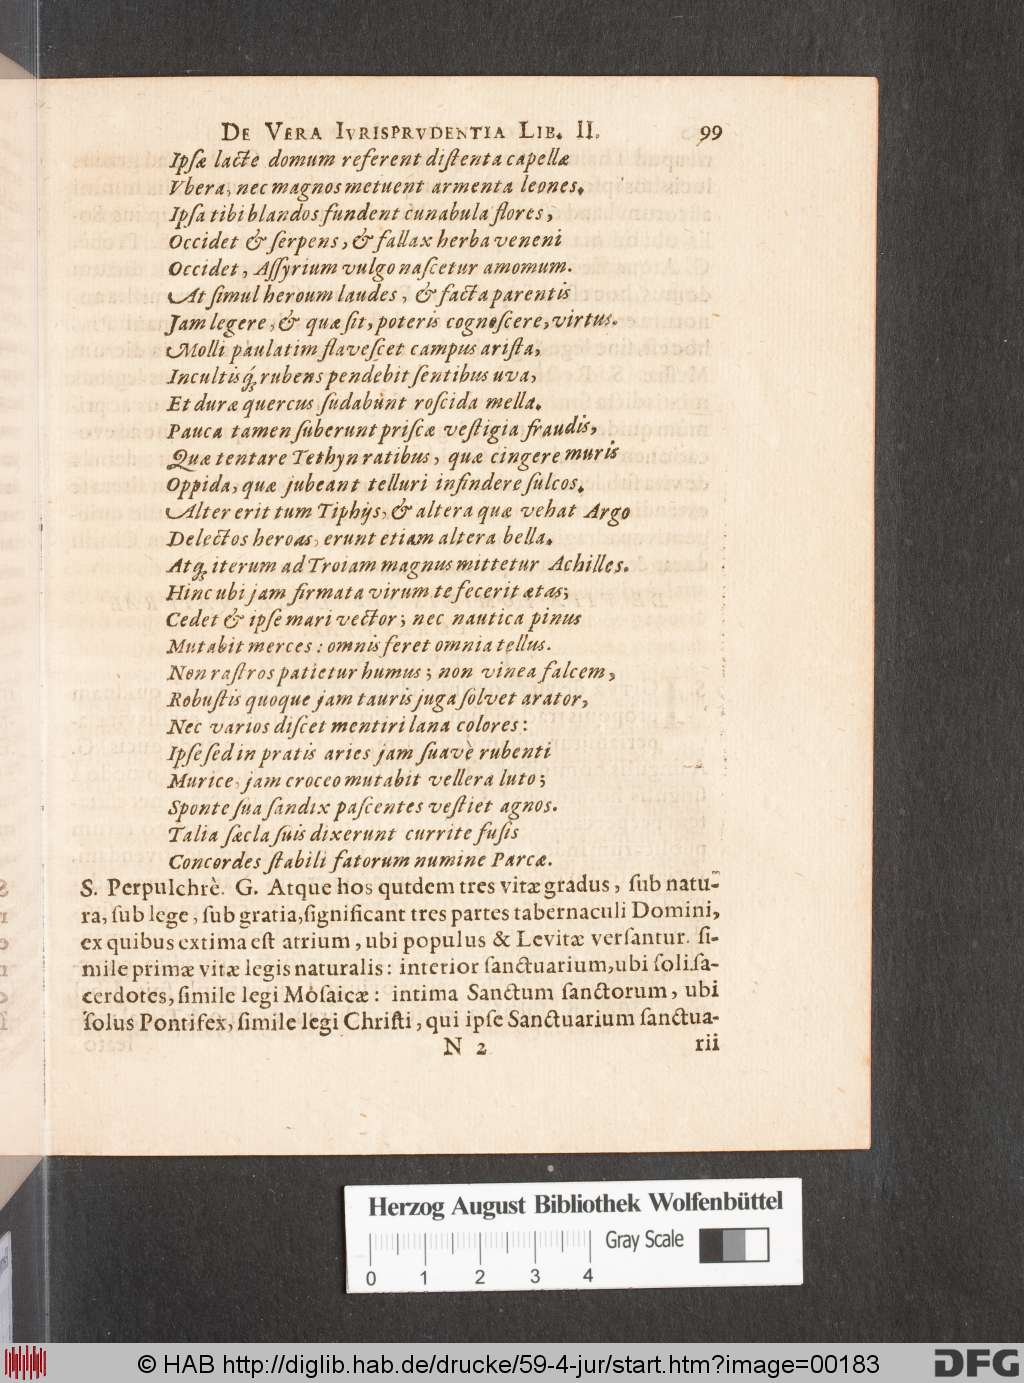 DE VERA IVRISPRVDENTIA LIB. II. 99
Ipſæ lacte domum referent diſtenta capellæ
Vbera, nec magnos metuent armenta leones.
Ipſa tibi blandos fundent cunabula flores,
Occidet & ſerpens, & fallax herba veneni
Occidet, Aſſyrium vulgo naſcetur amomum.
At ſimul heroum laudes, & facta parentis
Jam legere, & quæ ſit, poteris cognoſcere, virtus.
Molli paulatim flaveſcet campus ariſta,
Incultisq́; rubens pendebit ſentibus uva,
Et duræ quercus ſudabunt roſcida mella.
Pauca tamen ſuberunt priſcæ veſtigia fraudis,
Quæ tentare Tethyn ratibus, quæ cingere muris
Oppida, quæ jubeant telluri infindere ſulcos.
Alter erit tum Tiphijs, & altera quæ vehat Argo
Delectos heroas, erunt etiam altera bella.
Atq́; iterum ad Troiam magnus mittetur Achilles.
Hinc ubi jam firmata virum te fecerit ætas;
Cedet & ipſe mari vector; nec nautica pinus
Mutabit merces: omnis feret omnia tellus.
Non raſtros patietur humus; non vinea falcem,
Robuſtis quoque jam tauris juga ſolvet arator,
Nec varios diſcet mentiri lana colores:
Ipſe ſed in pratis aries jam ſuavè rubenti
Murice, jam croceo mutabit vellera luto;
Sponte ſua ſandix paſcentes veſtiet agnos.
Talia ſæcla ſuis dixerunt currite fuſis
Concordes ſtabili fatorum numine Parcæ.
S. Perpulchrè. G. Atque hos qutdem tres vitæ gradus, ſub natu-
ra, ſub lege, ſub gratia, ſignificant tres partes tabernaculi Domini,
ex quibus extima eſt atrium, ubi populus & Levitæ verſantur. ſi-
mile primæ vitæ legis naturalis: interior ſanctuarium, ubi ſoli ſa-
cerdotes, ſimile legi Moſaicæ: intima Sanctum ſanctorum, ubi
ſolus Pontifex, ſimile legi Chriſti, qui ipſe Sanctuarium ſanctua-
N 2 rii
Herzog August Bibliothek Wolfenbüttel
Gray Scale
0 1 2 3 4
© HAB http://diglib.hab.de/drucke/59-4-jur/start.htm?image=00183
DFG